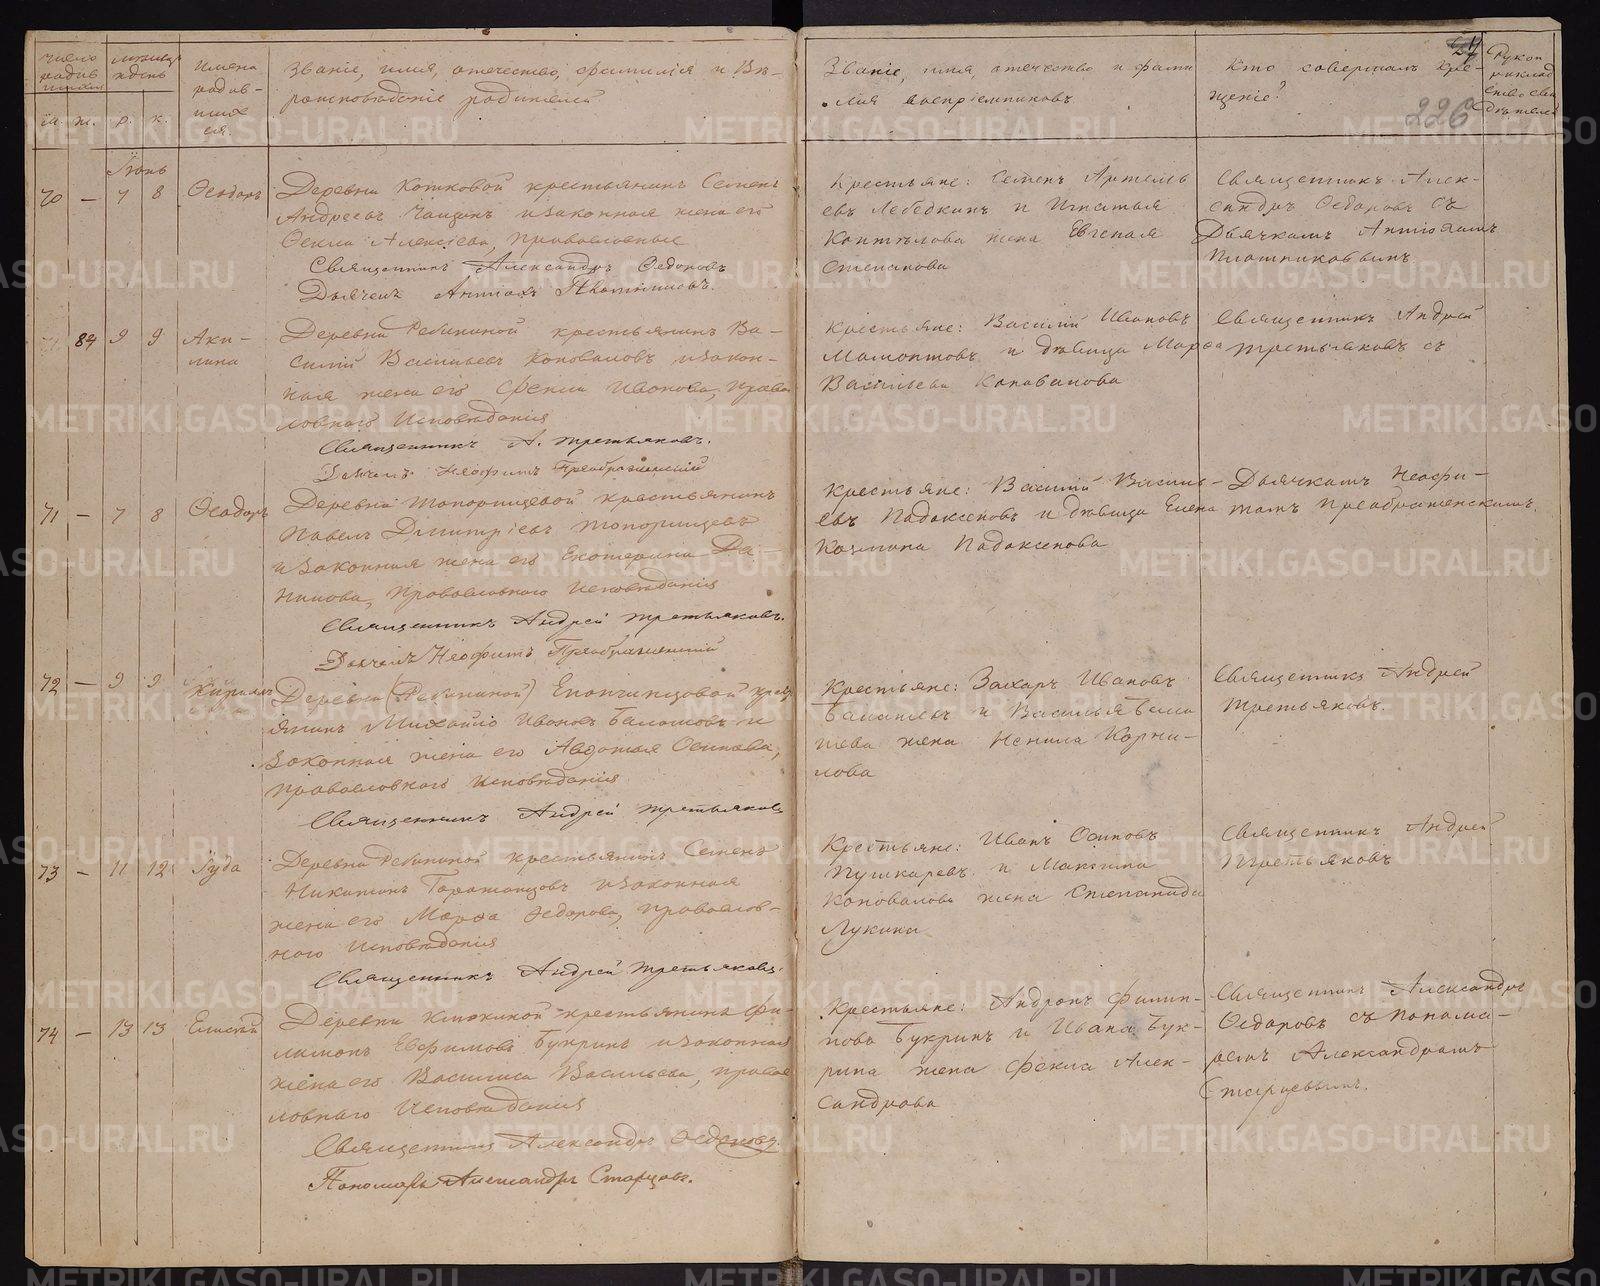 число родив шихся
м. ж.
месяцъ и день
р. к.
Имена родив-
ших
ся.
Званіе, имя, отечество, фамилія и Вѣ-
роисповѣданіе родителей
Званіе, имя, отечество и фами
лія воспріемниковъ
Кто совершалъ кре-
щеніе?
226
Іюнь
70 — 7 8 Ѳеодоръ
Деревни Котковой крестьянинъ Семенъ
Андреевъ и законная жена его
Ѳекла Алексіева, православные
Священникъ Александръ Ѳедоровъ
Дьячекъ Антіохъ Плотниковъ.
Крестьяне: Семенъ Артемь
евъ Лебедкинъ и Игнатья
жена Евгенія
Степанова
Священникъ Алек-
сандръ Ѳедоровъ съ
Дьячкомъ Антіохомъ
Плотниковымъ
84 9 9 Аки-
лина
Деревни Рябининой крестьянинъ Ва-
силій Васильевъ Коноваловъ и закон-
ная жена его Фекла Иванова, право
ловнаго Исповѣданія
Священникъ А. Третьяковъ.
Дьячекъ Неофитъ Преображенскій
Крестьяне: Василій Ивановъ
Мамонтовъ и дѣвица Марѳа
Васильева Коновалова
Священникъ Андрей
Третьяковъ съ
71 — 7 8 Ѳеодоръ
Деревни Топорищевой крестьянинъ
Павелъ Дмитріевъ Топорищевъ
и законная жена его Екатерина Да-
нилова, Православнаго Исповѣданія
Священникъ Андрей Третьяковъ.
Дьячекъ Неофитъ Преображенскій
Крестьяне: Василій Василь-
евъ Падоксеновъ и дѣвица Елена
Козмина Падоксенова
Дьячкомъ Неофи-
томъ Преображенскимъ.
72 — 9 9 Кириллъ
Деревни (Рябининой) Епанчинцовой крест
янинъ Михайло Ивановъ Балашовъ и
законная жена его Авдотья Осипова,
православнаго Исповѣданія
Священникъ Андрей Третьяковъ
Крестьяне: Захаръ Ивановъ
и Василья
жена Ненила Корни-
лова
Священникъ Андрей
Третьяковъ.
73 — 11 12 Іуда
Деревни Рябининой крестьянинъ Семенъ
Никитинъ и законная
жена его Марѳа Ѳедорова, православ-
наго Исповѣданія
Священникъ Андрей Третьяковъ.
Крестьяне: Иванъ Осиповъ
Пушкаревъ и Максима
Коновалова жена Степанида
Лукина
Священникъ Андрей
Третьяковъ
74 — 13 13 Елисей
Деревни Ключиной крестьянинъ Фи-
лимонъ Евфимовъ Букринъ и законная
жена его Василиса Васильева, право
ловнаго Исповѣданія
Священникъ Александръ Ѳедоровъ.
Пономарь Александръ Старцовъ.
Крестьяне: Андронъ Филип-
повъ Букринъ и Ивана Бук-
рина жена Фекла Алек-
сандрова
Священникъ Александръ
Ѳедоровъ съ Понома-
ремъ Александромъ
Старцовымъ.
METRIKI.GASO-URAL.RU